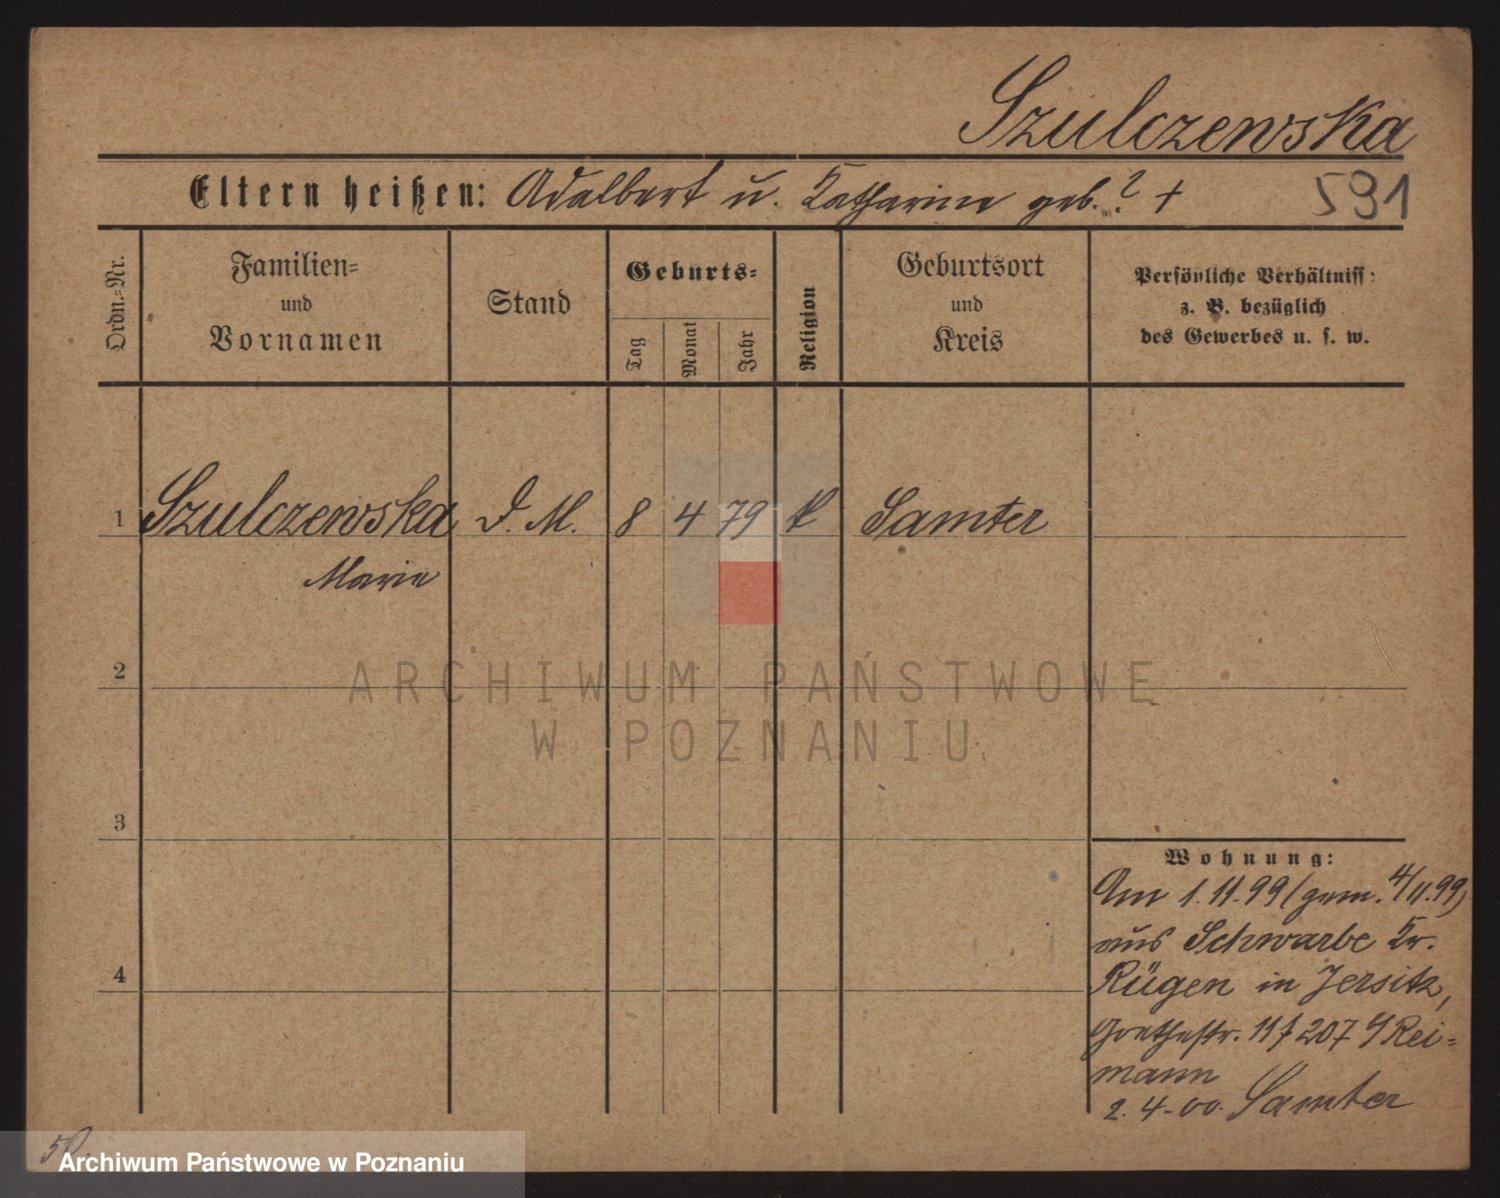 Szulczewska
Eltern heißen: Adalbert u. Katharine geb. ? +
591
Ordn.-Nr.
Familien-
und
Vornamen
Stand
Geburts-
Tag
Monat
Jahr
Religion
Geburtsort
und
Kreis
Persönliche Verhältniss:
z. B. bezüglich
des Gewerbes u. s. w.
1 Szulczewska D. M. 8 4 79 k Samter
Marie
2
3
4
Wohnung:
Am 1.11.99 (gem. 4/11.99)
aus Schwarbe Kr.
Rügen in Jersitz,
Goethestr. 207 Rei-
mann
2.4.00. Samter
ARCHIWUM PAŃSTWOWE
W POZNANIU
Archiwum Państwowe w Poznaniu